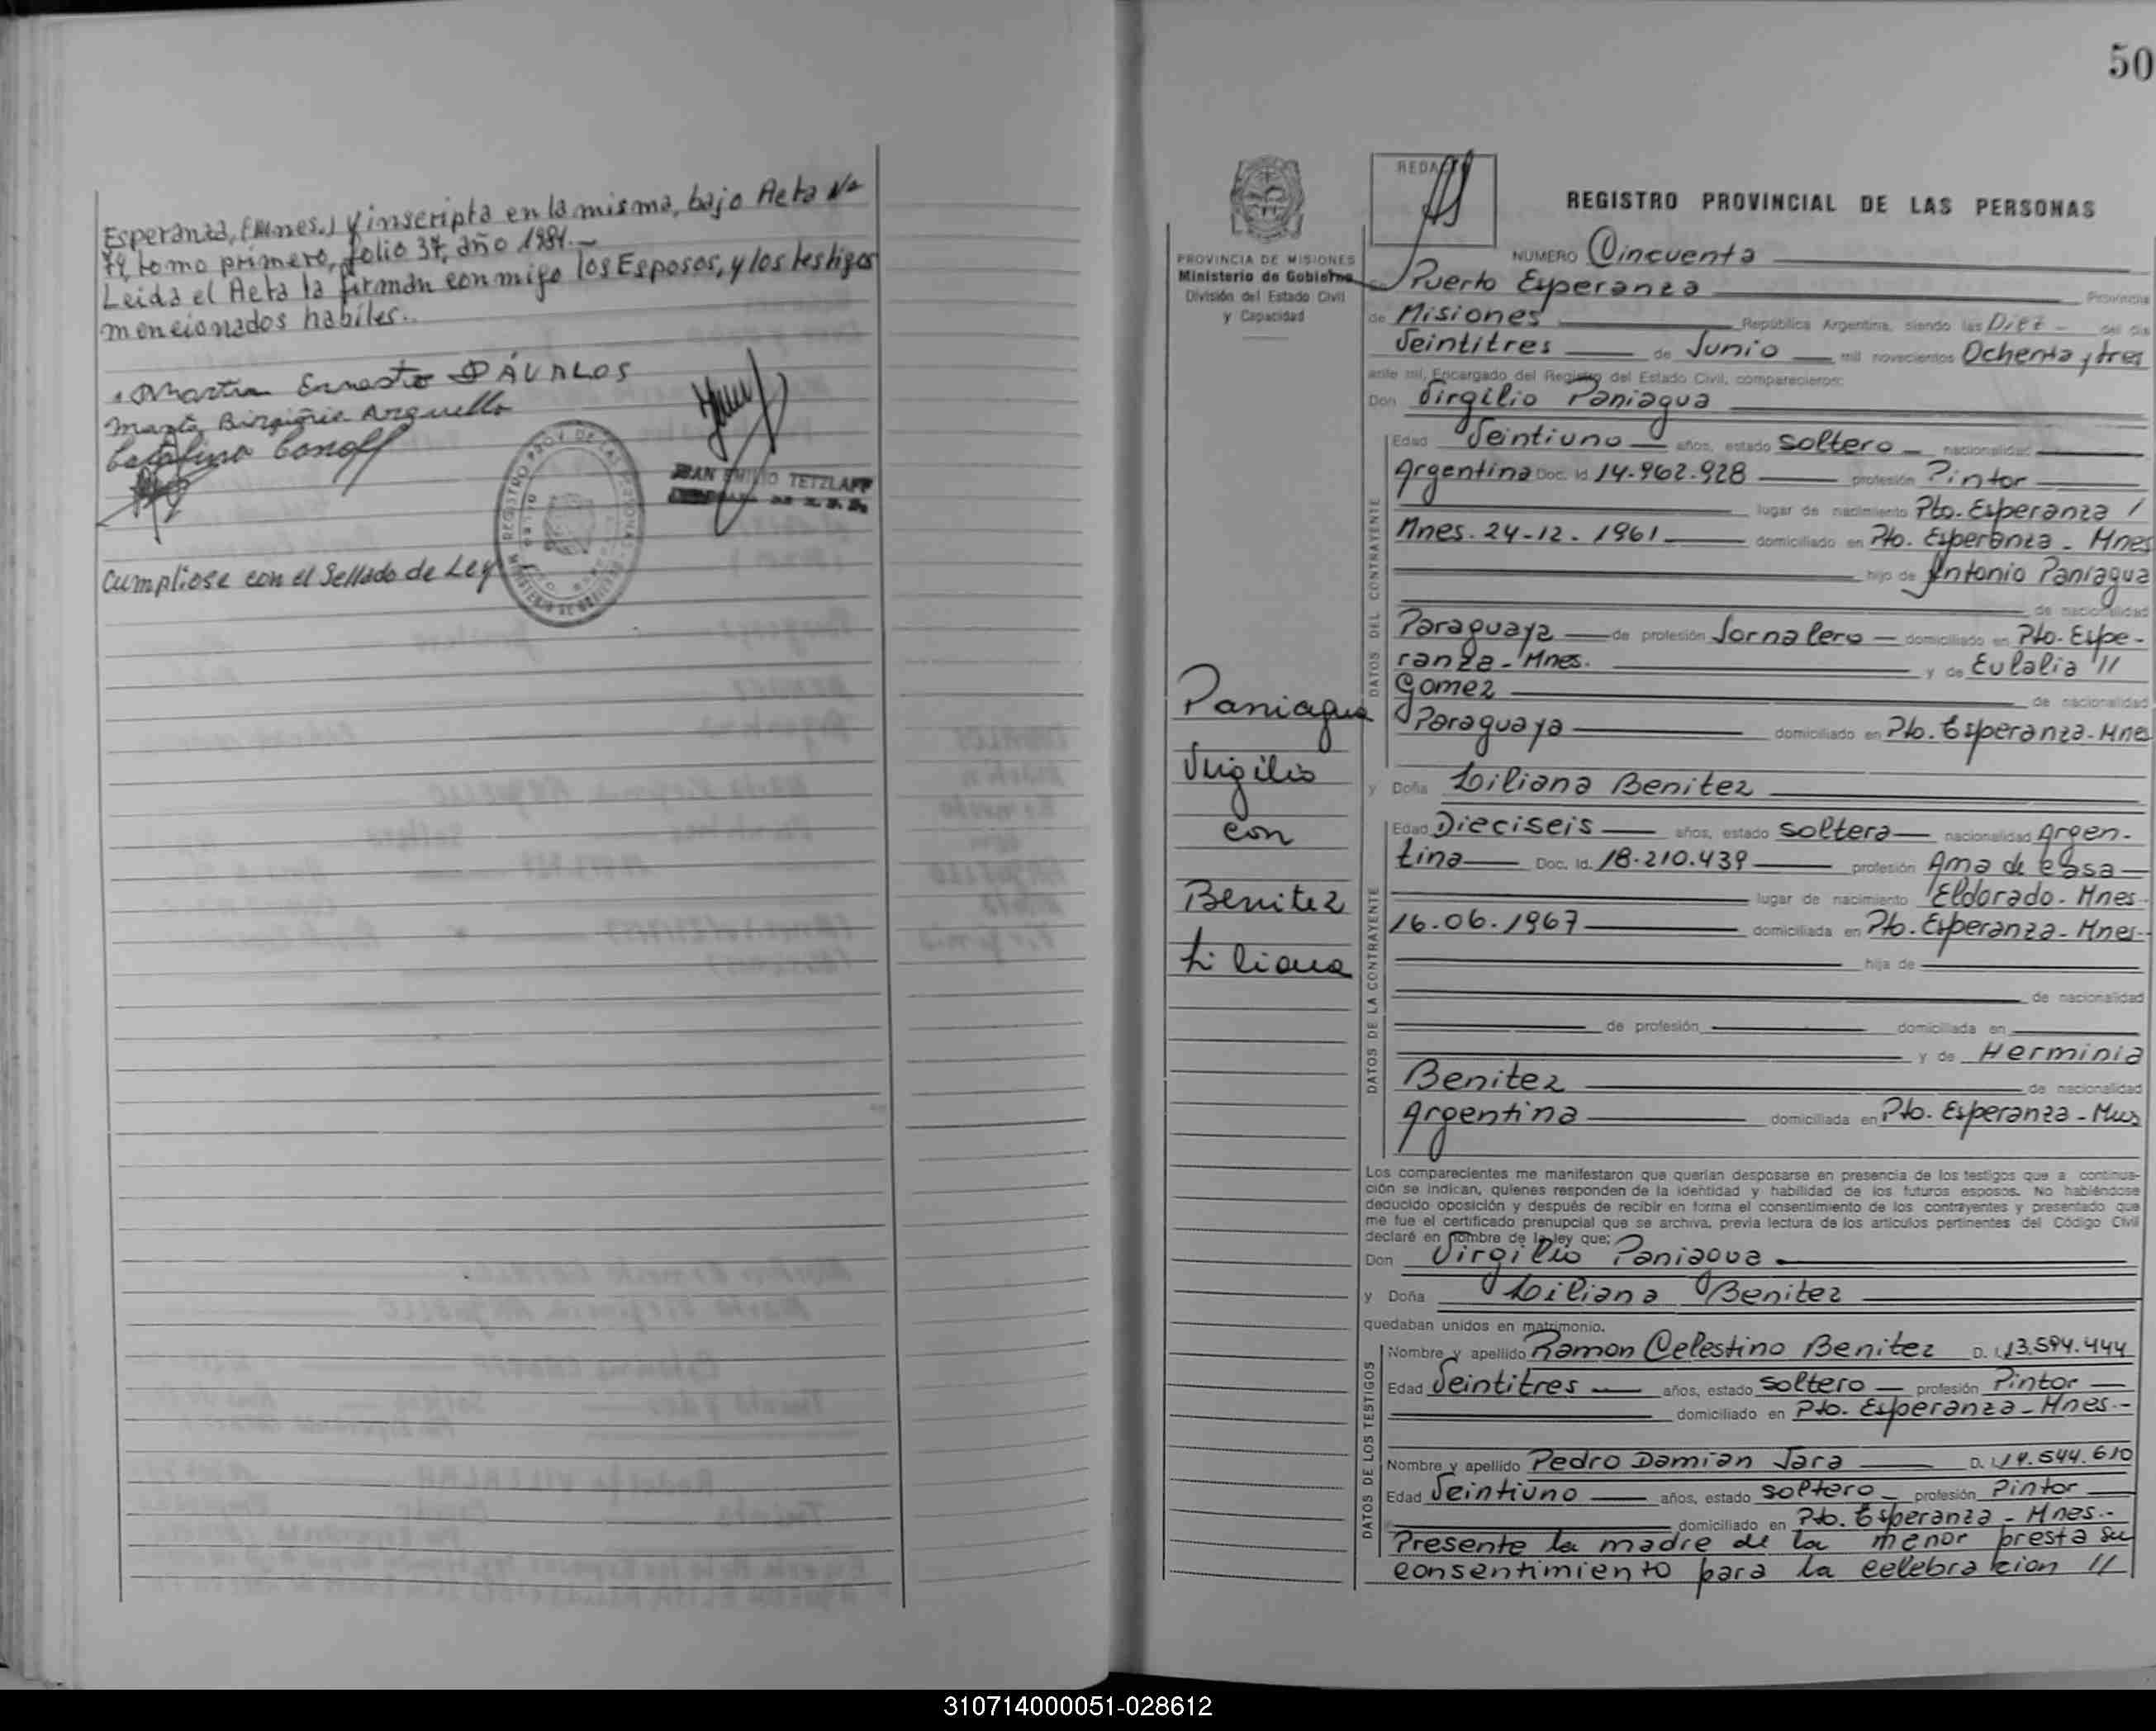 Esperanza, (Mnes.) y inscripta en la misma, bajo Acta Nº
79, tomo primero, folio 37, año 1981.-
Leida el Acta la firman conmigo los Esposos, y los testigos
mencionados habiles.-
Martin Ernesto DÁVALOS
Marta Birginia Arguello
Catalina Canoff
JUAN EMILIO TETZLAFF
Cumpliose con el Sellado de Ley
50
REGISTRO PROVINCIAL DE LAS PERSONAS
PROVINCIA DE MISIONES
Ministerio de Gobierno
División del Estado Civil
y Capacidad
NUMERO Cincuenta
Puerto Esperanza Provincia
de Misiones República Argentina, siendo las Diez - del día
Veintitres de Junio mil novecientos Ochenta y tres
ante mí, Encargado del Registro del Estado Civil, comparecieron:
Don Virgilio Paniagua
DATOS DEL CONTRAYENTE
Edad Veintiuno años, estado soltero nacionalidad
Argentina Doc. Id. 14.962.928 profesión Pintor
lugar de nacimiento Pto. Esperanza /
Mnes. 24-12-1961 domiciliado en Pto. Esperanza - Mnes
hijo de Antonio Paniagua
de nacionalidad
Paraguaya de profesión Jornalero domiciliado en Pto. Espe-
ranza - Mnes. y de Eulalia //
Gomez de nacionalidad
Paraguaya domiciliado en Pto. Esperanza - Mnes
Paniagua
Virgilio
con
Benitez
Liliana
y Doña Liliana Benitez
DATOS DE LA CONTRAYENTE
Edad Dieciseis años, estado soltera nacionalidad Argen-
tina Doc. Id. 18.210.439 profesión Ama de casa
lugar de nacimiento Eldorado - Mnes.
16.06.1967 domiciliada en Pto. Esperanza - Mnes.-
hija de
de nacionalidad
de profesión domiciliada en
y de Herminia
Benitez de nacionalidad
Argentina domiciliada en Pto. Esperanza - Mnes
Los comparecientes me manifestaron que querían desposarse en presencia de los testigos que a continua-
ción se indican, quienes responden de la identidad y habilidad de los futuros esposos. No habiéndose
deducido oposición y después de recibir en forma el consentimiento de los contrayentes y presentado que
me fue el certificado prenupcial que se archiva, previa lectura de los artículos pertinentes del Código Civil
declaré en nombre de la ley que:
Don Virgilio Paniagua
y Doña Liliana Benitez
quedaban unidos en matrimonio.
DATOS DE LOS TESTIGOS
Nombre y apellido Ramon Celestino Benitez D. I. 13.594.444
Edad Veintitres años, estado soltero profesión Pintor
domiciliado en Pto. Esperanza - Mnes.-
Nombre y apellido Pedro Damian Jara D. I. 14.544.610
Edad Veintiuno años, estado soltero profesión Pintor
domiciliado en Pto. Esperanza - Mnes.-
Presente la madre de la menor presta su
consentimiento para la celebracion //
310714000051-028612